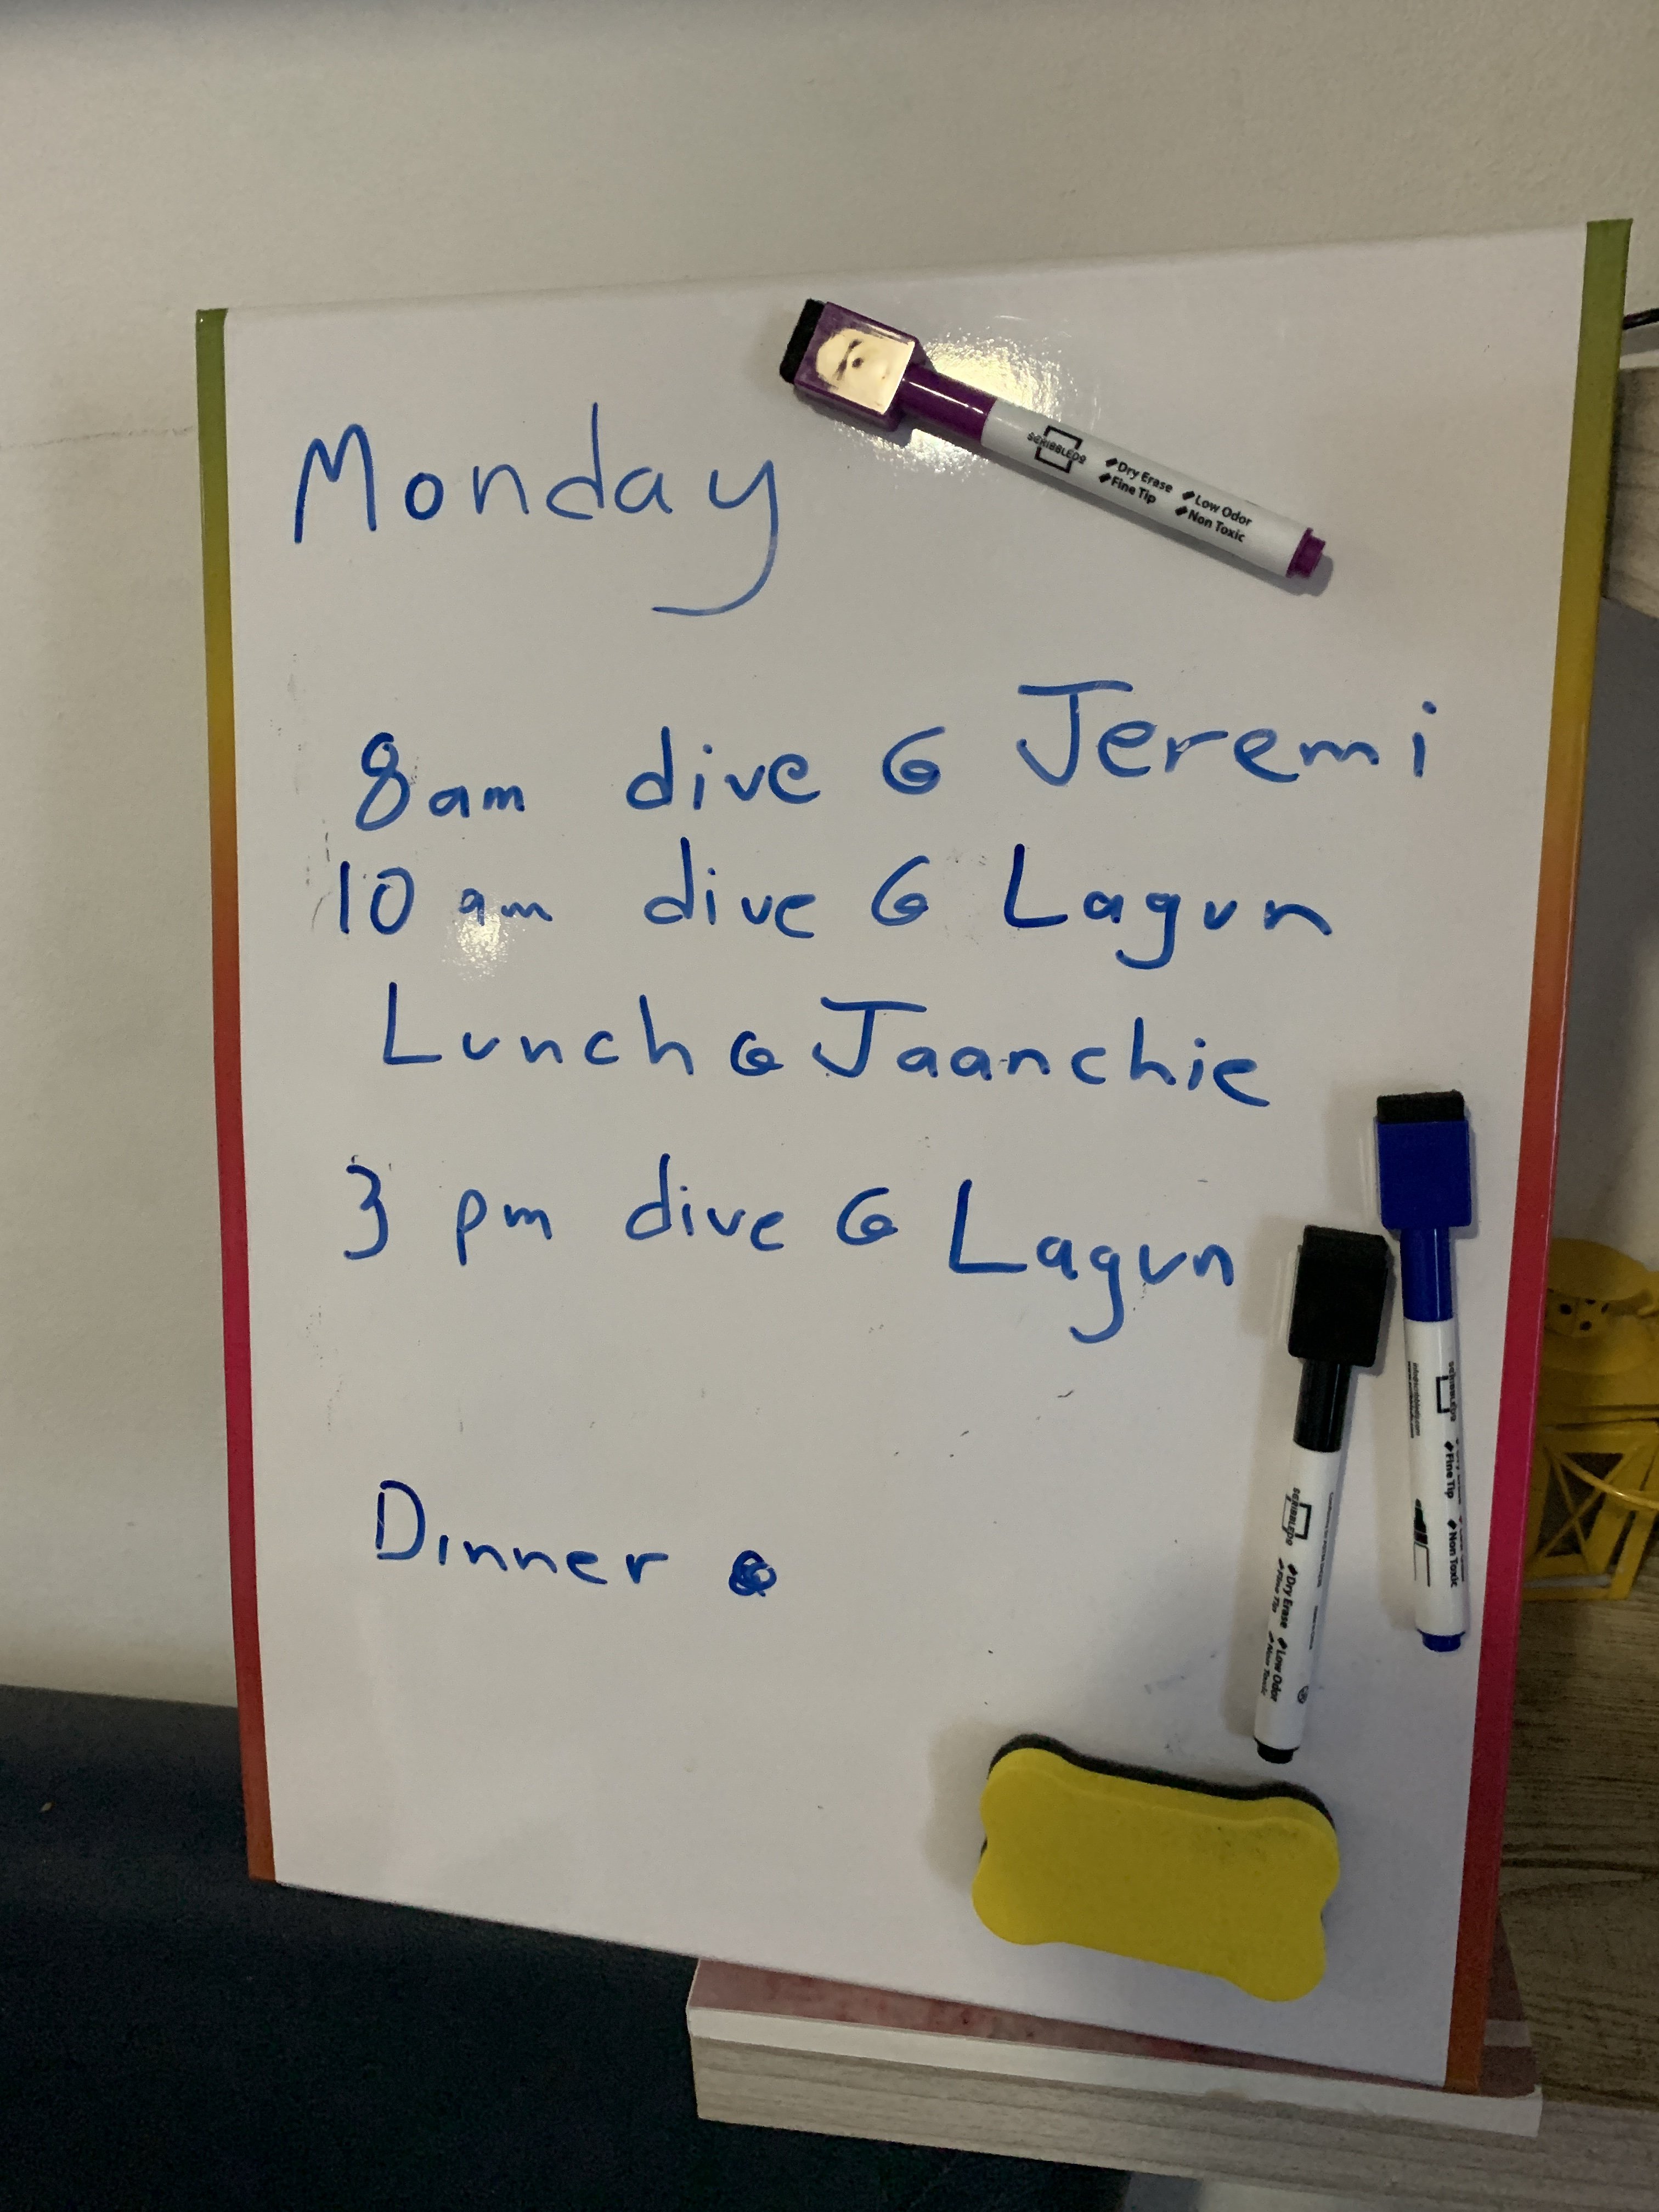 Monday
8am dive @ Jeremi
10 am dive @ Lagun
Lunch @ Jaanchie
3 pm dive @ Lagun
Dinner @
SCRIBBLEDO
Dry Erase Low Odor
Fine Tip Non Toxic
SCRIBBLEDO
Fine Tip Non Toxic
SCRIBBLEDO
Dry Erase Low Odor
Fine Tip Non Toxic